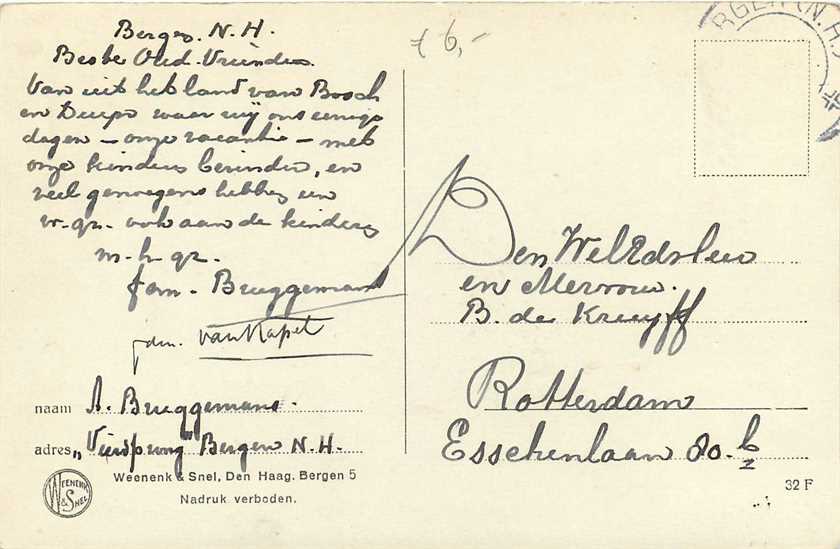 Bergen. N. H.
Beste Oud-Vrienden.
Van uit het land van Bosch
en Duijn waar wij ons eenige
dagen - onze vacantie - met
onze kinders bevinden, en
veel genoegens hebben een
v. gr. ook aan de kinders
m. h. gr.
fam. Bruggemans
fam. van Kapel
naam A. Bruggemans.
adres „Viersprong" Bergen N. H.
Weenenk & Snel, Den Haag. Bergen 5
Nadruk verboden.
WEENENK & SNEL
ƒ 6,-
BERGEN (N.H.)
Den WelEd.
en Mevrouw.
B. de Kruyff
Rotterdam
Esschenlaan 80. b
32 F